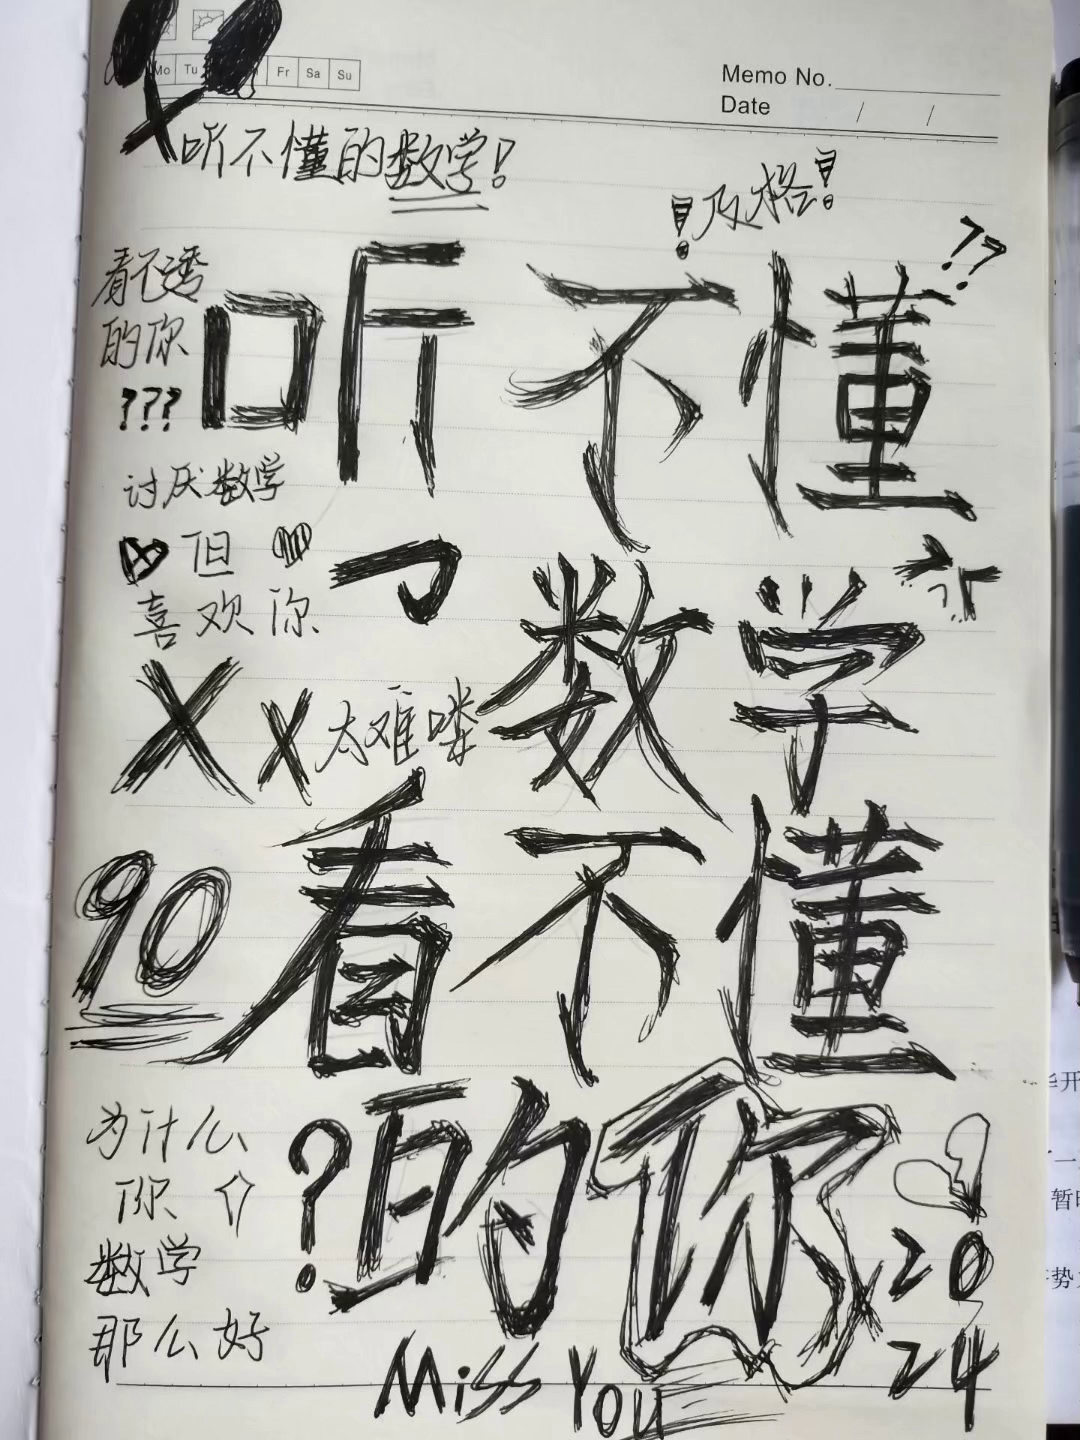 Mo Tu Fr Sa Su
Memo No.
Date / /
听不懂的数学!
!及格!
看不透
的你
???
听不懂
??
讨厌数学
但
喜欢你
数学
X X 太难喽
看不懂
90
为什么
你
数学
那么好
?的你
20
24
Miss You
开
一
暂时
势